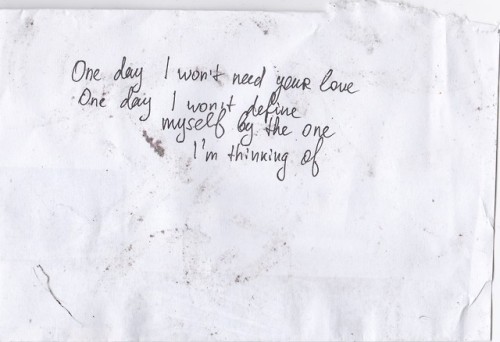 One day I won't need your love
One day I won't define
myself by the one
I'm thinking of